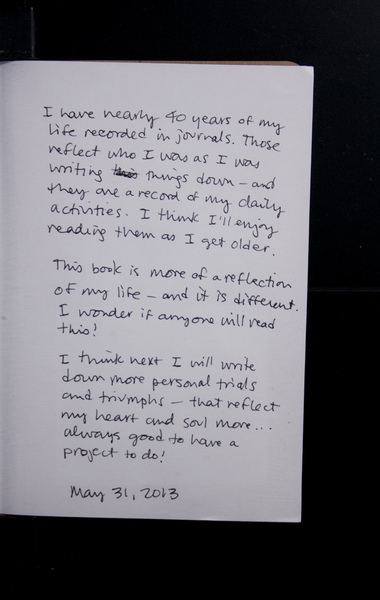 I have nearly 40 years of my
life recorded in journals. Those
reflect who I was as I was
writing things down – and
they are a record of my daily
activities. I think I'll enjoy
reading them as I get older.
This book is more of a reflection
of my life – and it is different.
I wonder if anyone will read
this!
I think next I will write
down more personal trials
and triumphs – that reflect
my heart and soul more...
always good to have a
project to do!
May 31, 2013